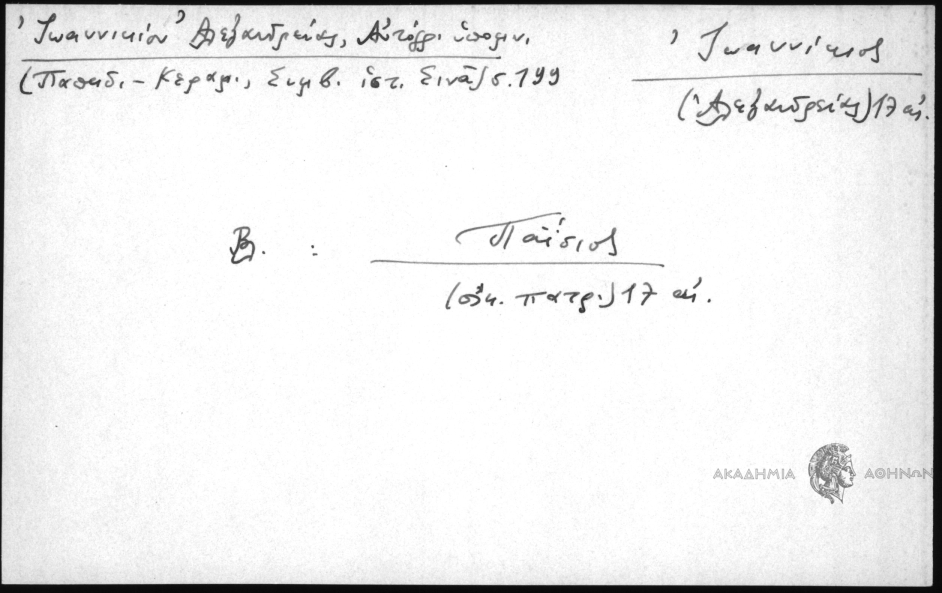 Ἰωαννικίου Ἀλεξανδρείας, Αὐτόγρ. ὑπομν.
(Παπαδ.-Κεραμ., Συμβ. ἱστ. Σινᾶ) σ. 199
Ἰωαννίκιος
(Ἀλεξανδρείας) 17 αἰ.
Βλ. :
Παΐσιος
(οἰκ. πατρ.) 17 αἰ.
ΑΚΑΔΗΜΙΑ ΑΘΗΝΩΝ